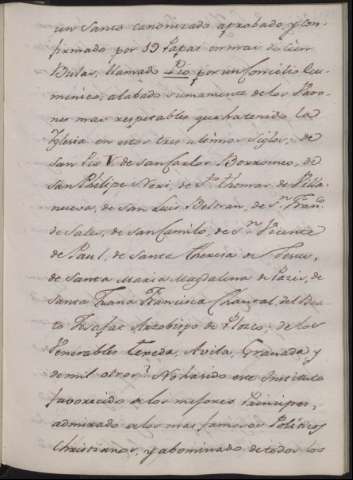 un Santo canonizado aprobado, y con-
firmado por 19 Papas en mas de cien
Bulas, llamado Pio, por un Concilio Ecu-
menico, alabado sumamente de los Varo-
nes mas respetables que ha tenido la
Yglesia en estos tres ultimos siglos; de
San Pio V. de San Carlos Borromeo, de
San Phelipe Neri, de Sto. Thomas de Villa-
nueva, de San Luis Beltran, de Sn. Franco.
de Sales, de San Camilo, de Sn. Vicente
de Paul, de Santa Theresa de Jesus,
de Santa Maria Magdalena de Pazis, de
Santa Juana Francisca Chantal, del Bea-
to Arzobispo de de los
Venerables Avila, Granada y
de mil otros? No ha sido este Instituto
favorecido de los mejores Principes,
admirado de los mas famosos Politicos
Christianos, y abominado de todos los